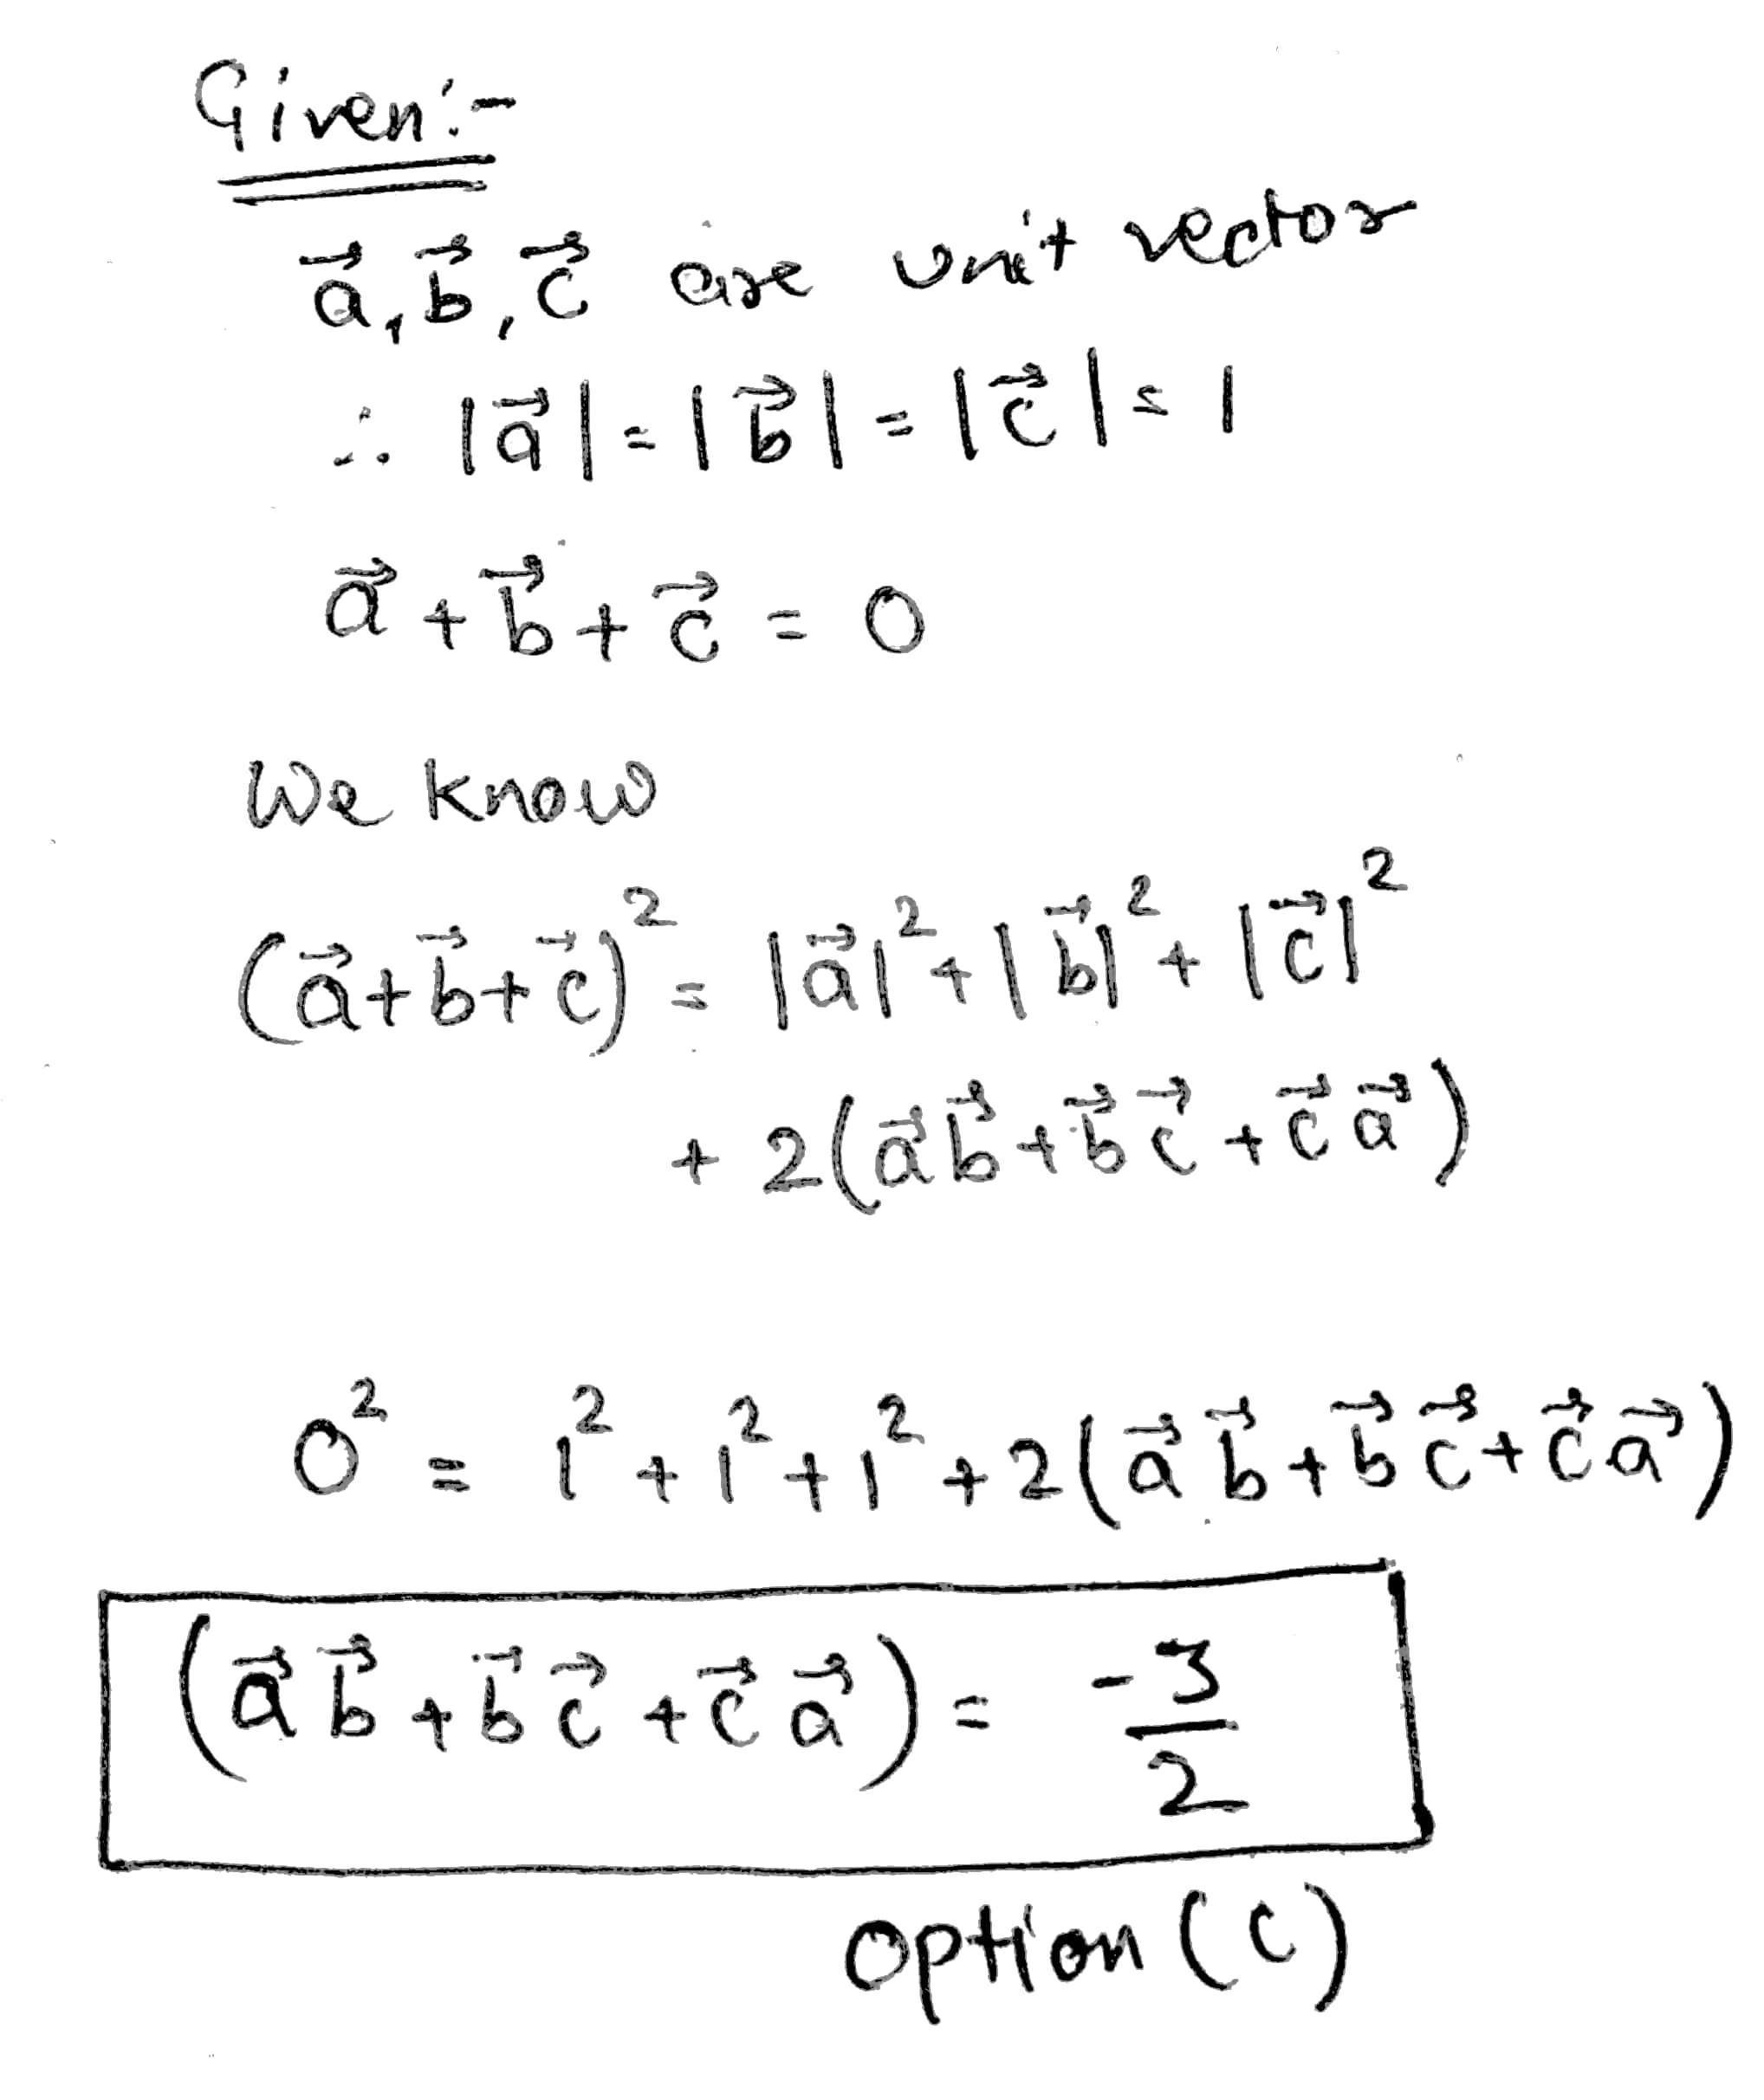 Given:-
a⃗, b⃗, c⃗ are unit vector
∴ |a⃗| = |b⃗| = |c⃗| = 1
a⃗ + b⃗ + c⃗ = 0
We know
(a⃗+b⃗+c⃗)² = |a⃗|² + |b⃗|² + |c⃗|²
+ 2(a⃗ b⃗ + b⃗ c⃗ + c⃗ a⃗)
0² = 1² + 1² + 1² + 2(a⃗ b⃗ + b⃗ c⃗ + c⃗ a⃗)
(a⃗ b⃗ + b⃗ c⃗ + c⃗ a⃗) = -3/2
option (c)